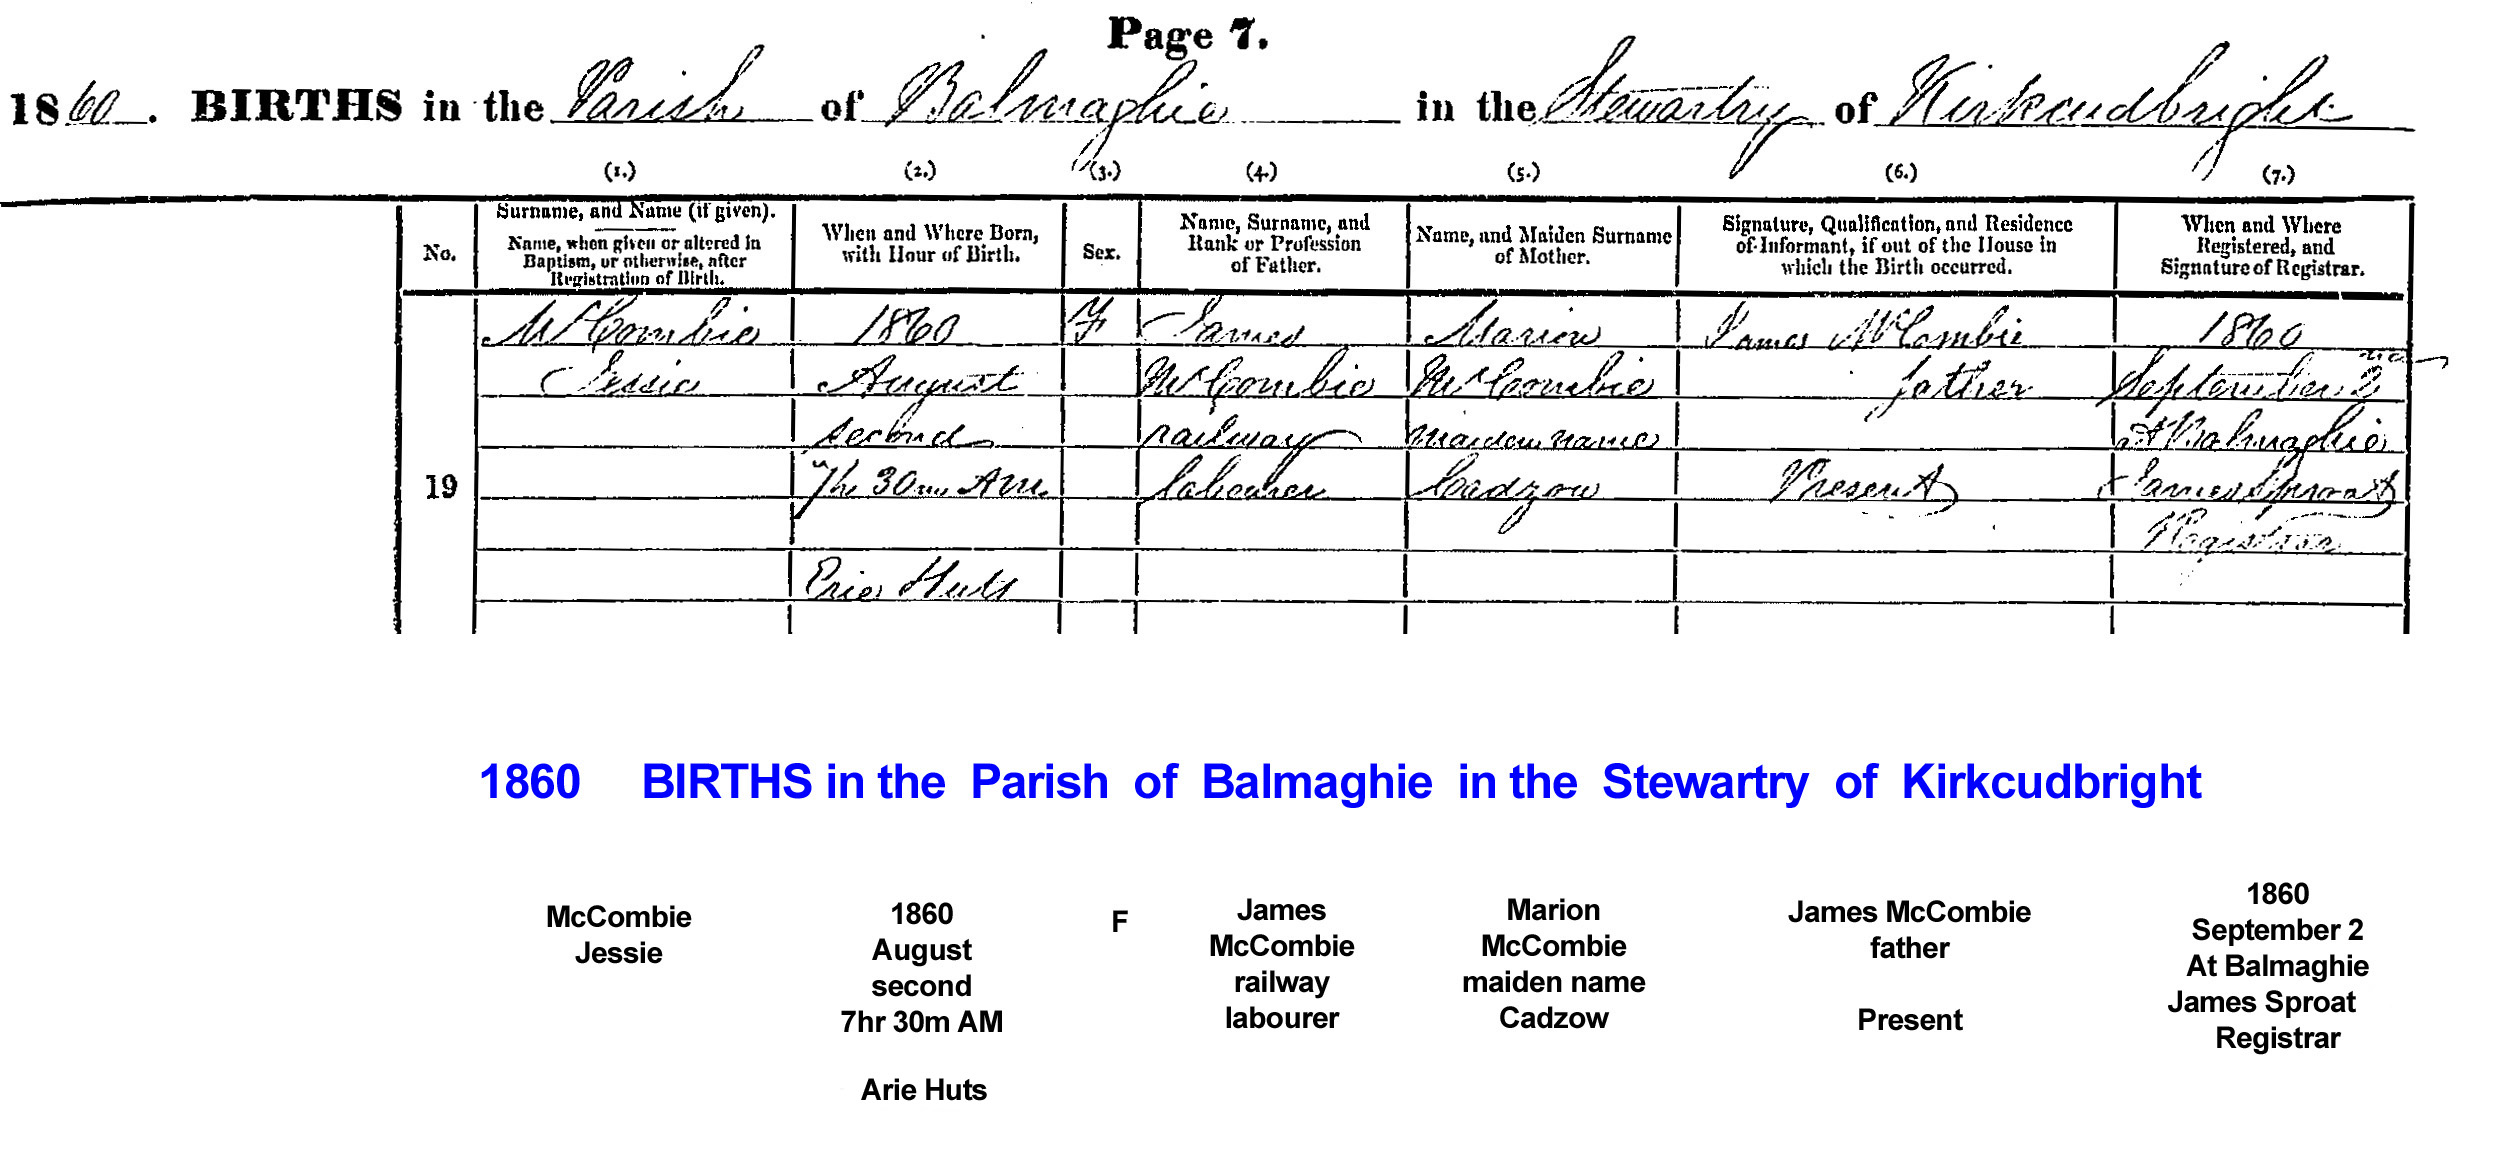 Page 7.
1860. BIRTHS in the Parish of Balmaghie in the Stewartry of Kirkcudbright
(1.) (2.) (3.) (4.) (5.) (6.) (7.)
No.
Surname, and Name (if given).
Name, when given or altered in
Baptism, or otherwise, after
Registration of Birth.
When and Where Born,
with Hour of Birth.
Sex.
Name, Surname, and
Rank or Profession
of Father.
Name, and Maiden Surname
of Mother.
Signature, Qualification, and Residence
of Informant, if out of the House in
which the Birth occurred.
When and Where
Registered, and
Signature of Registrar.
19
McCombie
Jessie
1860
August
second
7hr 30m AM.
Huts
F
James
McCombie
railway
labourer
Marion
McCombie
maiden name
Cadzow
James McCombie
father
Present
1860
September 2nd
At Balmaghie
James Sproat
Registrar
1860 BIRTHS in the Parish of Balmaghie in the Stewartry of Kirkcudbright
McCombie
Jessie
1860
August
second
7hr 30m AM
Arie Huts
F
James
McCombie
railway
labourer
Marion
McCombie
maiden name
Cadzow
James McCombie
father
Present
1860
September 2
At Balmaghie
James Sproat
Registrar